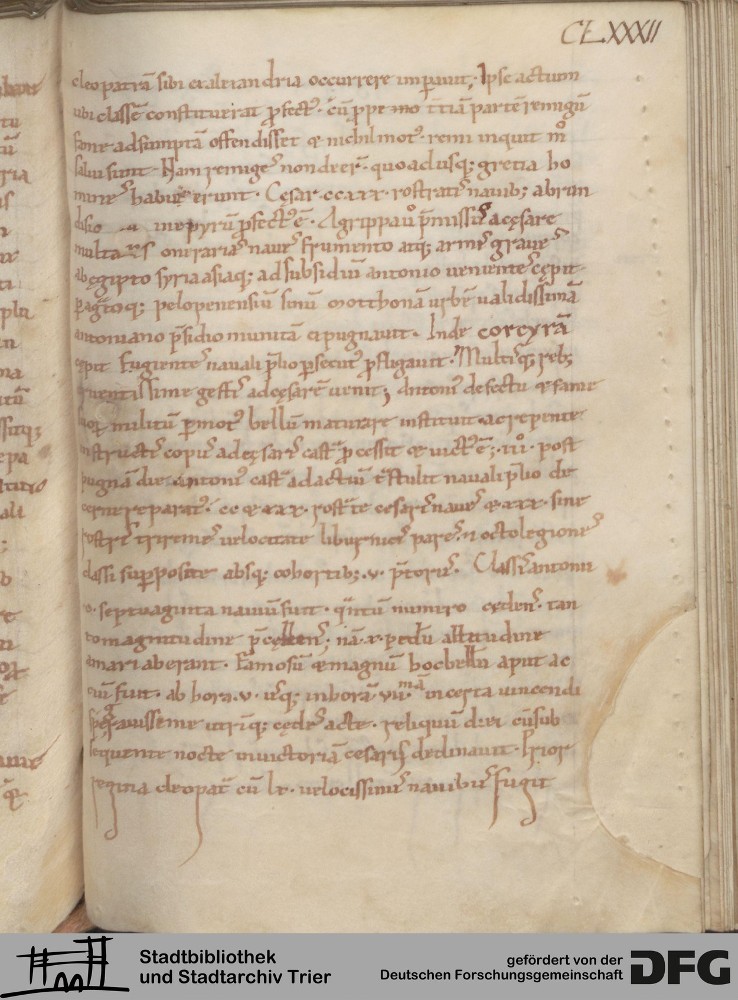 CLXXXII
cleopatrā sibi exalexandria occurrere imꝑauit; Ipse actium
ubi classē constituerat ꝓfectꝰ. cū ꝓpe mo t̄tiā partē remigū
fame adsumptā offendisset & nichil motꝰ. remi inquit m̊
salui sunt. Nam remigeˢ non deerт̄. quoad usq; gretia ho
mineˢ habuerint. Cęsar ccxxx. rostratiˢ nauib; abrun
disio inepyrū ꝓfectꝰ ē. Agrippa ů p̄missuˢ acęsare
multaˢ onerariaˢ naueˢ frumento atq; armiˢ graueˢ
abęgipto syria asiaq; ad subsidiū antonio uenienteˢ cępit
ꝑagratoq; pelopenensiū sinū motthonā urbē ualidissimā
antoniano p̄sidio munitā expugnauit. Inde corcyrā
cepit Fugienteˢ nauali p̄lio ꝑsecutꝰ ꝓfligauit. Multiˢq; reb;
cruentissime gestiˢ ad cęsarē uenit; Antoniꝰ defectu & fame
militū ꝑmotꝰ bellū maturare instituit. ac repente
instructiˢ copiiˢ ad cęsariˢ castᵃ ꝓcessit & uictꝰ ē; .iii. post
pugnā die antoniꝰ castᵃ ad actiū tᵃstulit nauali p̄lio de
cernere paratꝰ. cc & xxx. rostᵃte cesariˢ naueˢ & xxx. sine
rostriˢ triremeˢ uelocitate liburniciˢ pareˢ. & octo legioneˢ
classi supposite absq; cohortib; .v. p̄toriiˢ. Classiˢ antonii
septuaginta nauiū fuit. quātū numero cędenˢ. tan
to magnitudine p̄cellenˢ; nā .x. pedū altitudine
amari aberant. Famosū & magnū hoc bellū aput ac
tiū fuit. ab hora .v. usq; in horā .vii. incerta uincendi
spe grauissime utriˢq; cędeˢ acte. reliquū diei cū sub
sequente nocte in uictoriā cesariˢ declinauit. Prior
regina cleopatᵃ cū lx. uelocissimiˢ nauibuˢ fugit
Stadtbibliothek
und Stadtarchiv Trier
gefördert von der
Deutschen Forschungsgemeinschaft
DFG